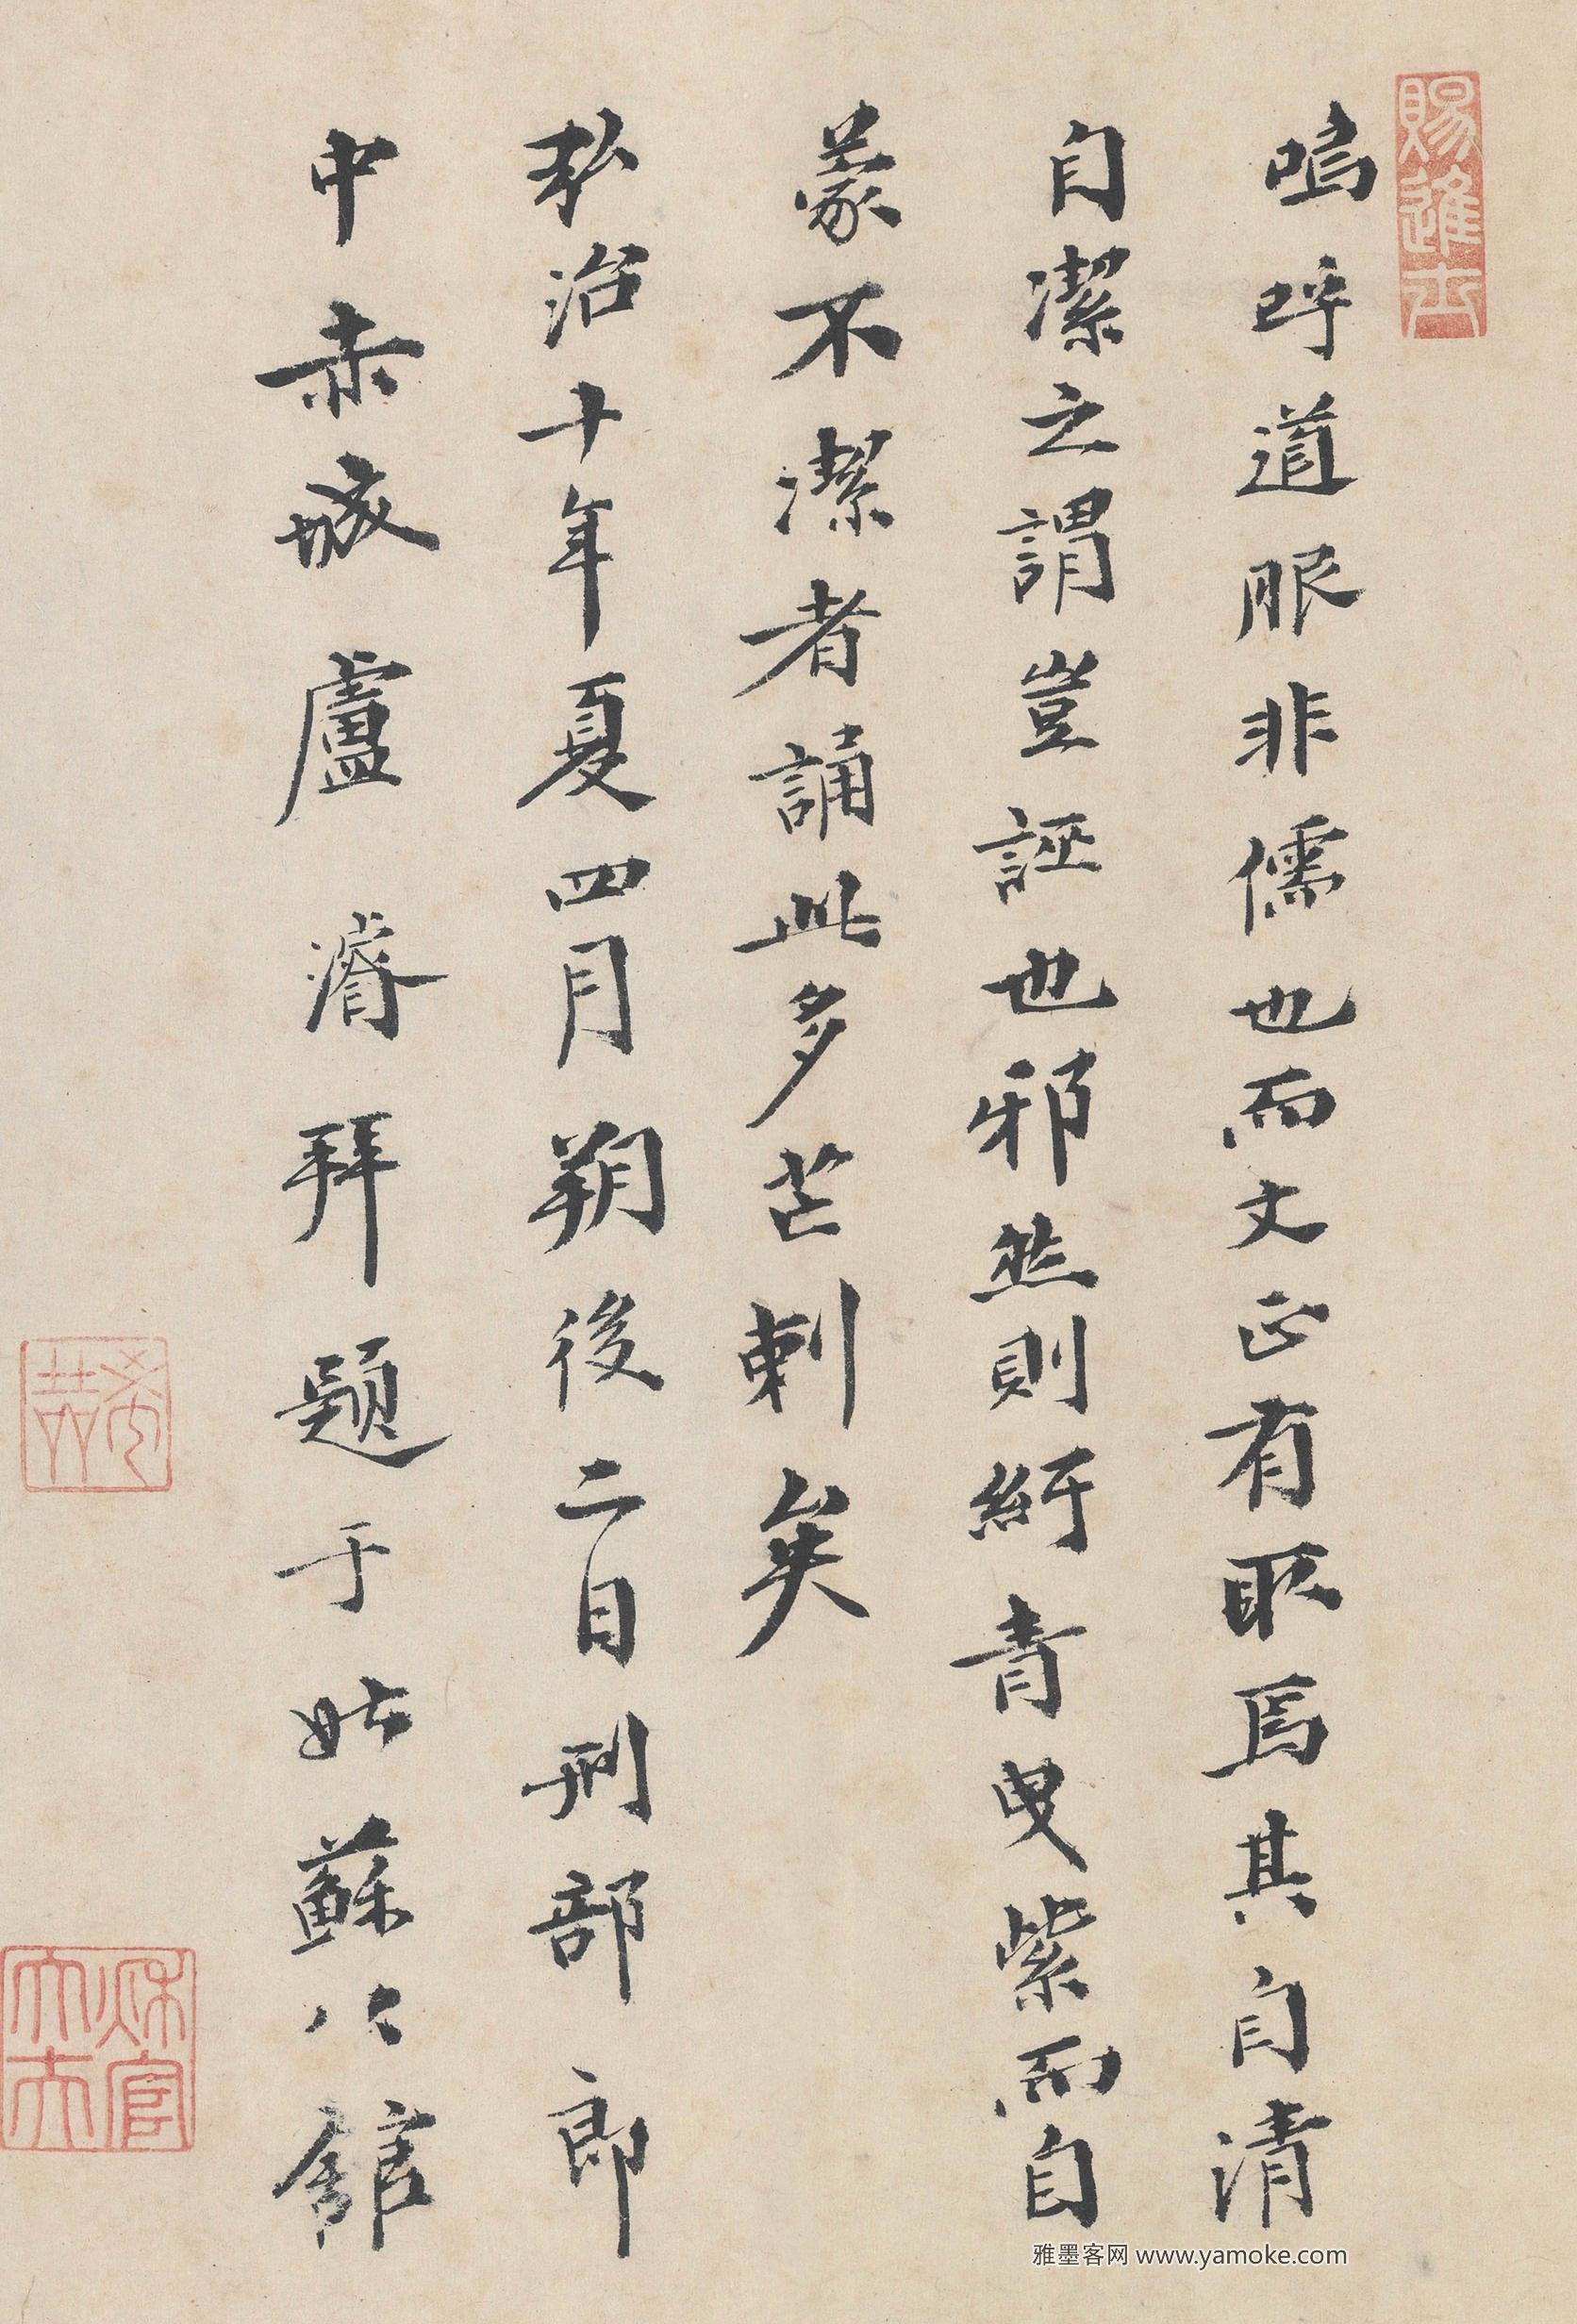 賜進士
嗚呼道服非儒也而文正有取焉其自清
自潔之謂豈誣也邪然則紆青曳紫而自
蒙不潔者誦此多芒刺矣
弘治十年夏四月朔後二日刑部郎
中赤城盧濬拜題于姑蘇公館
秋官大夫
雅墨客网 www.yamoke.com